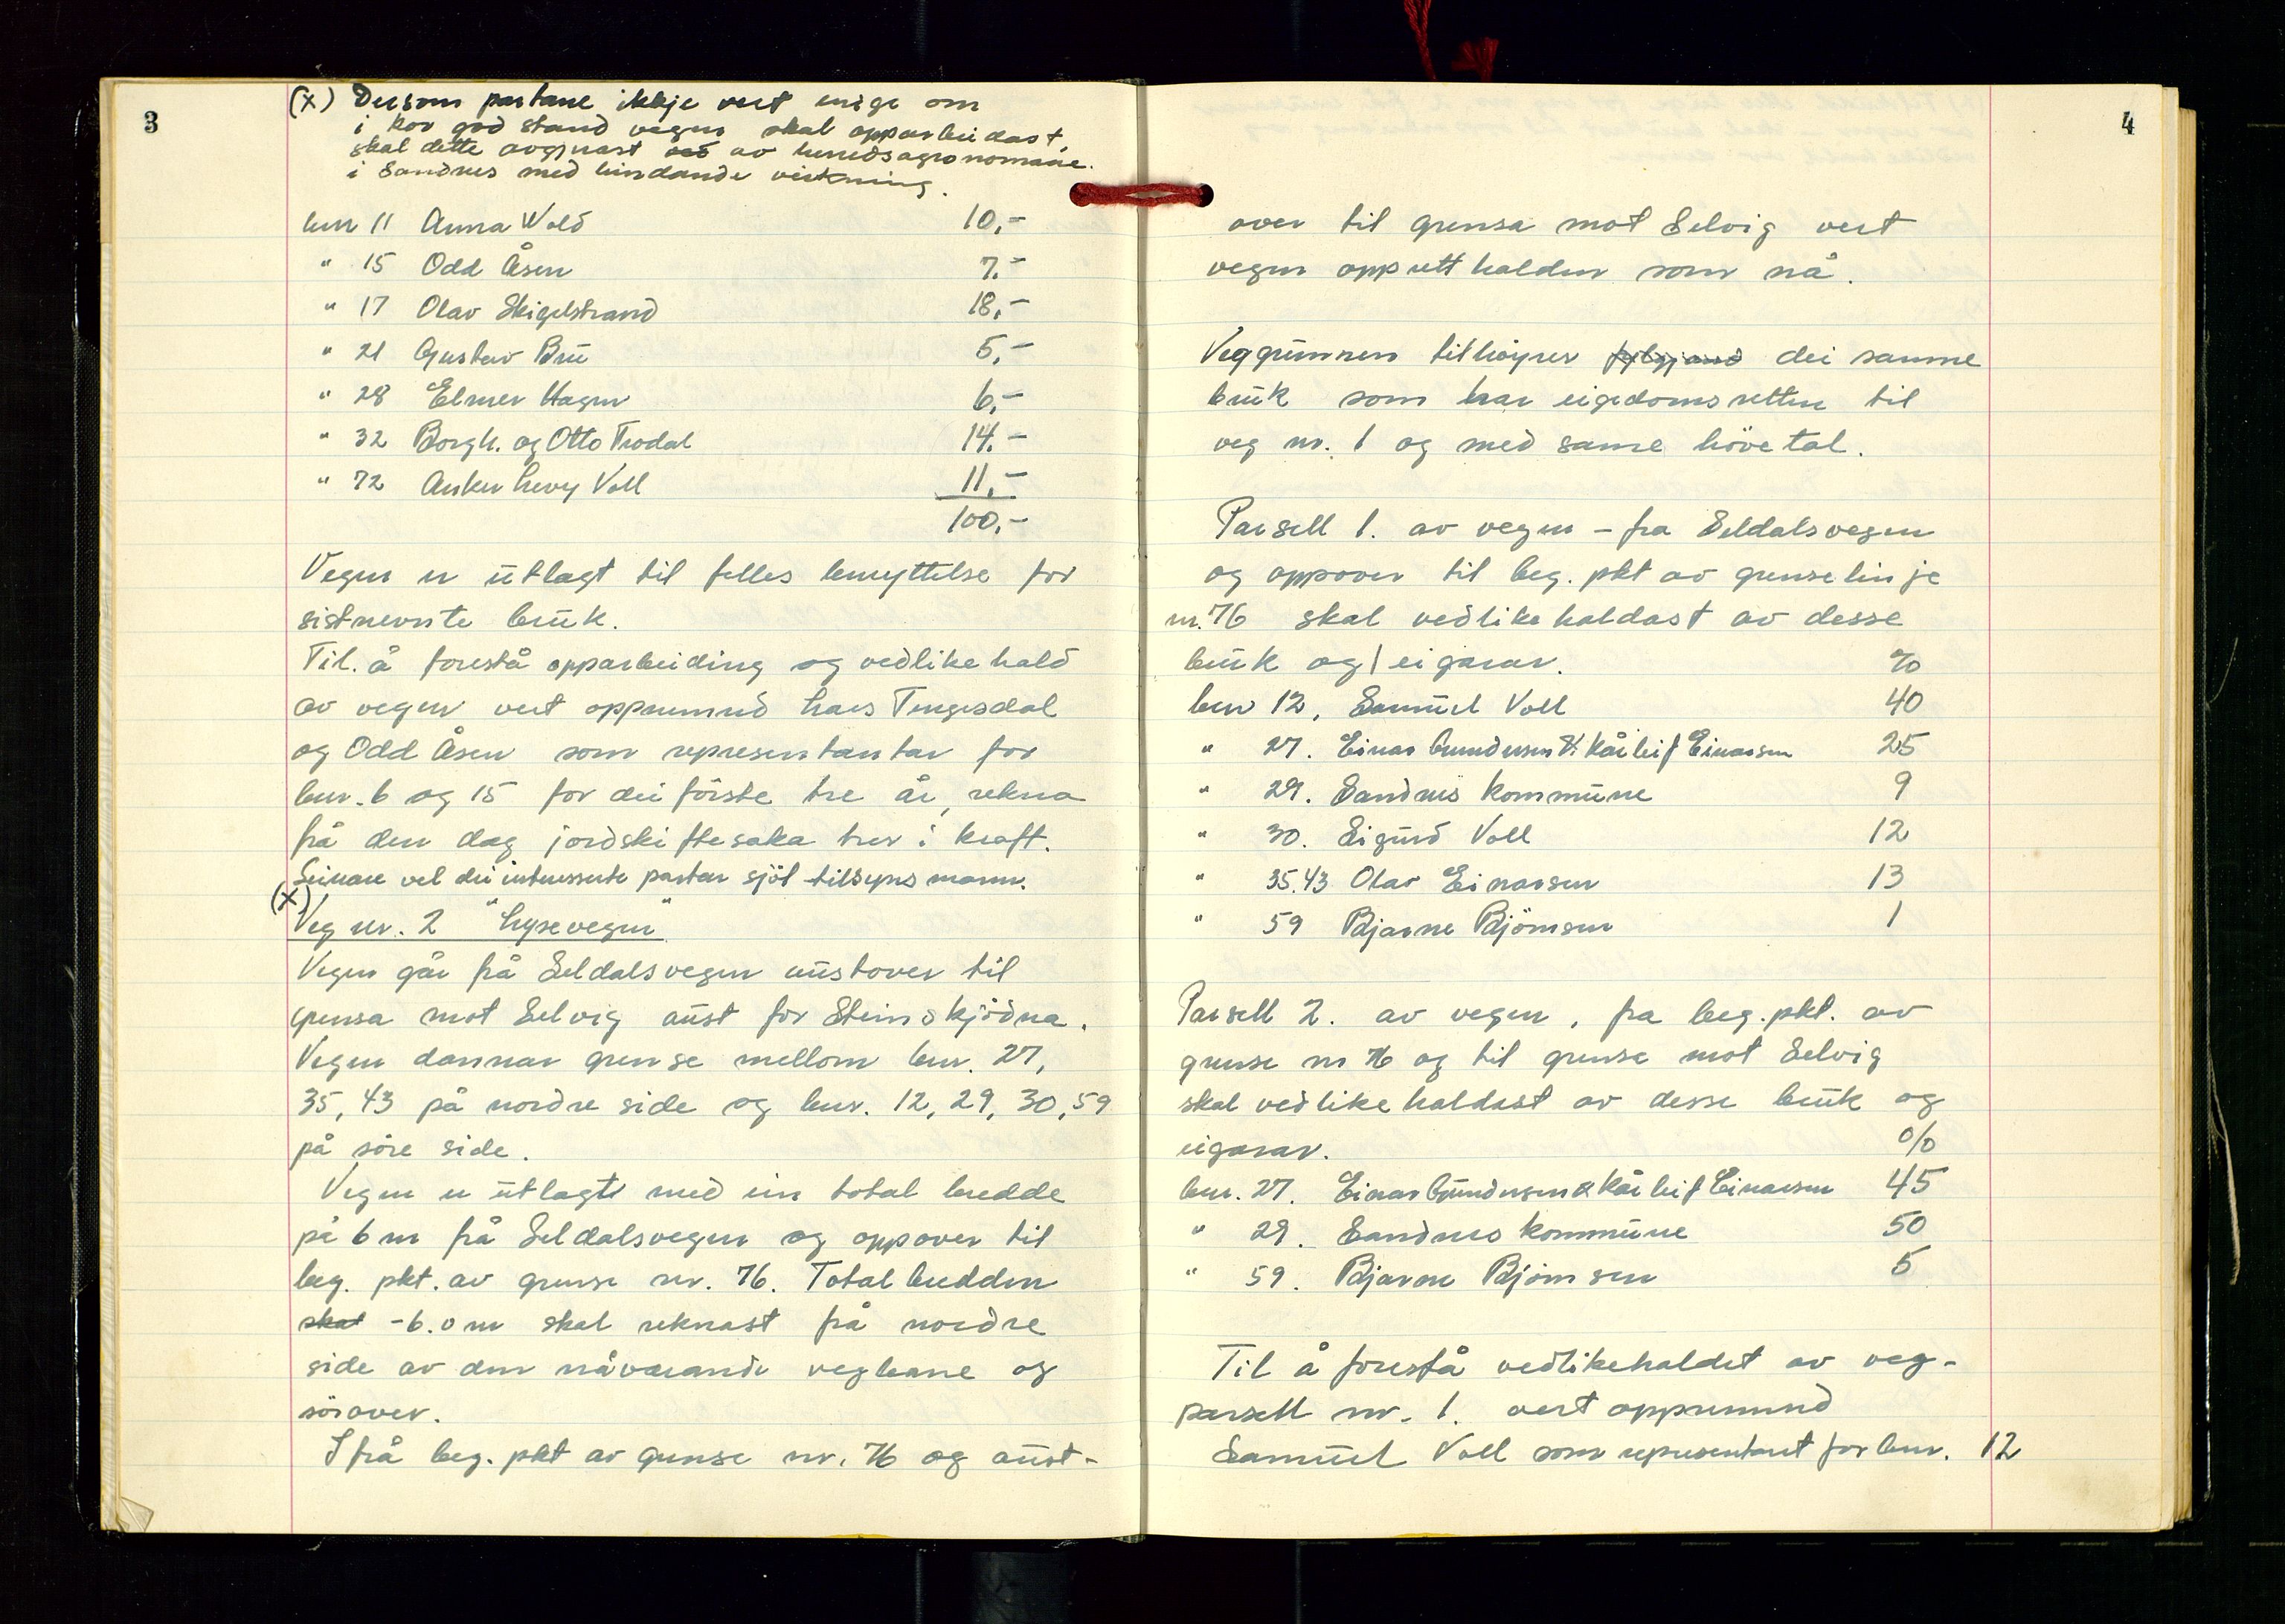 3
(x) Dersom partane ikkje vert enige om
i kor god stand vegen skal opparbeidast,
skal dette avgjerast ved av heredsagronomane
i Sandnes med bindande verkning.
bnr 11 Anna Wold 10,-
" 15 Odd Åsen 7,-
" 17 Olav Skigelstrand 18,-
" 21 Gustav Bru 5,-
" 28 Elmer Hagen 6,-
" 32 Borgh. og Otto Trodal 14,-
" 72 Anker Levy Voll 11,-
100,-
Vegen er utlagt til felles benyttelse for
sistnevnte bruk.
Til å forestå opparbeiding og vedlikehald
av vegen vert oppnemnd Lars Tengesdal
og Odd Åsen som representantar for
bnr. 6 og 15 for dei förste tre år, rekna
frå den dag jordskiftesaka trer i kraft.
Seinare vel dei interesserte partar sjöl tilsynsmann.
(x)
Veg nr. 2 "Lysevegen"
Vegen går frå Seldalsvegen austover til
grensa mot Selvig aust for Steinskjödna.
Vegen dannar grense mellom bnr. 27,
35, 43 på nordre side og bnr. 12, 29, 30, 59
på söre side.
Vegen er utlagt med ein total bredde
på 6 m frå Seldalsvegen og oppover til
beg. pkt. av grense nr. 76. Total bredden
skal - 6.0 m skal reknast frå nordre
side av den nåværande vegbane og
sörover.
Ifrå beg. pkt av grense nr. 76 og aust-
4
over til grensa mot Selvig vert
vegen opprettholden som nå.
Veggrunnen tilhöyrer fylgjand dei samme
bruk som har eigedomsretten til
veg nr. 1 og med same hövetal.
Parsell 1. av vegen - fra Seldalsvegen
og oppover til beg. pkt av grenselinje
nr. 76 skal vedlikehaldast av desse
bruk og eigarar. %
bnr 12, Samuel Voll 40
" 27. Einar Gundersen & Kåre Leif Einarsen 25
" 29. Sandnes kommune 9
" 30. Sigurd Voll 12
" 35.43 Olav Einarsen 13
" 59 Bjarne Björnsen 1
Parsell 2. av vegen, fra beg. pkt. av
grense nr 76 og til grense mot Selvig
skal vedlikehaldast av desse bruk og
eigarar. %
bnr. 27. Einar Gundersen & Kåre Leif Einarsen 45
" 29. Sandnes kommune 50
" 59. Bjarne Björnsen 5
Til å forestå vedlikehaldet av veg-
parsell nr. 1. vert oppnemnd
Samuel Voll som representant for bnr. 12